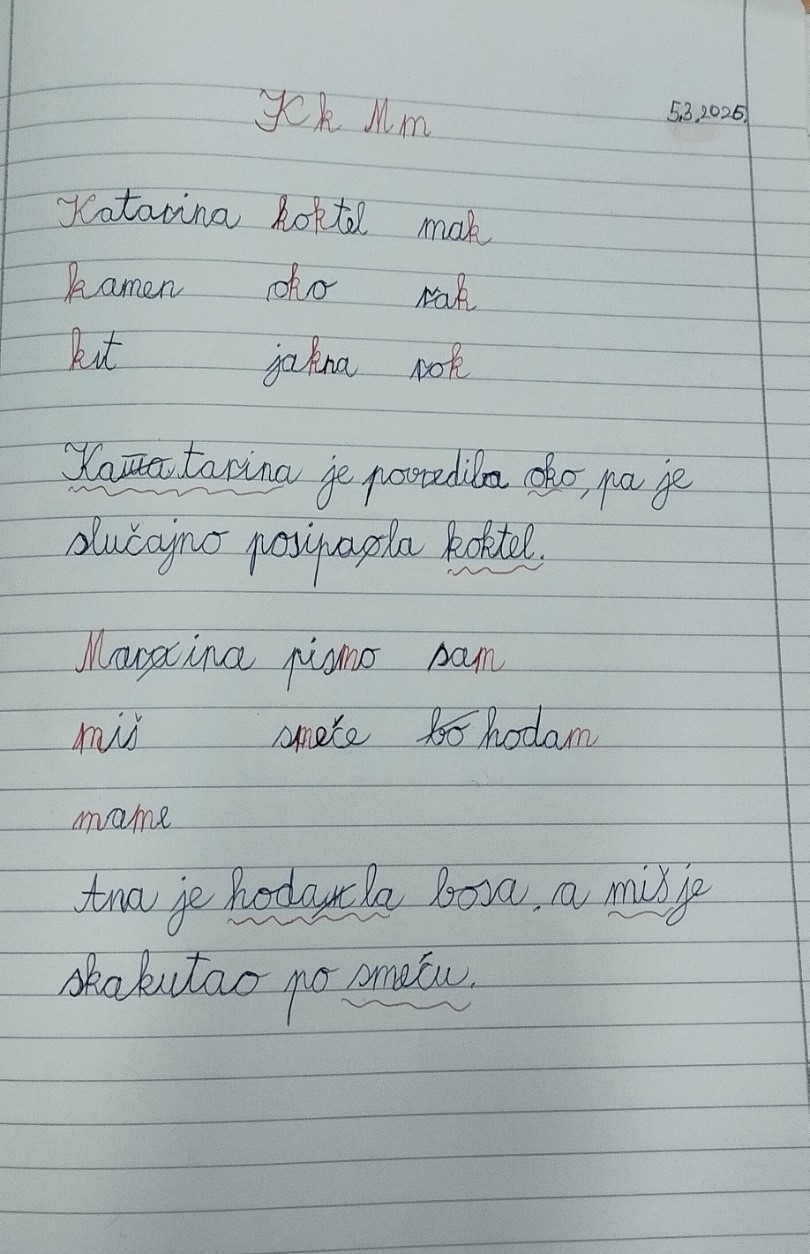 Kk Mm
5.3.2025.
Katarina koktel mak
kamen oko rak
kit jakna rok
Katarina je povredila oko, pa je
slučajno posipala koktel.
Marina pismo sam
miš smeće hodam
mame
Ana je hodala bosa, a miš je
skakutao po smeću.